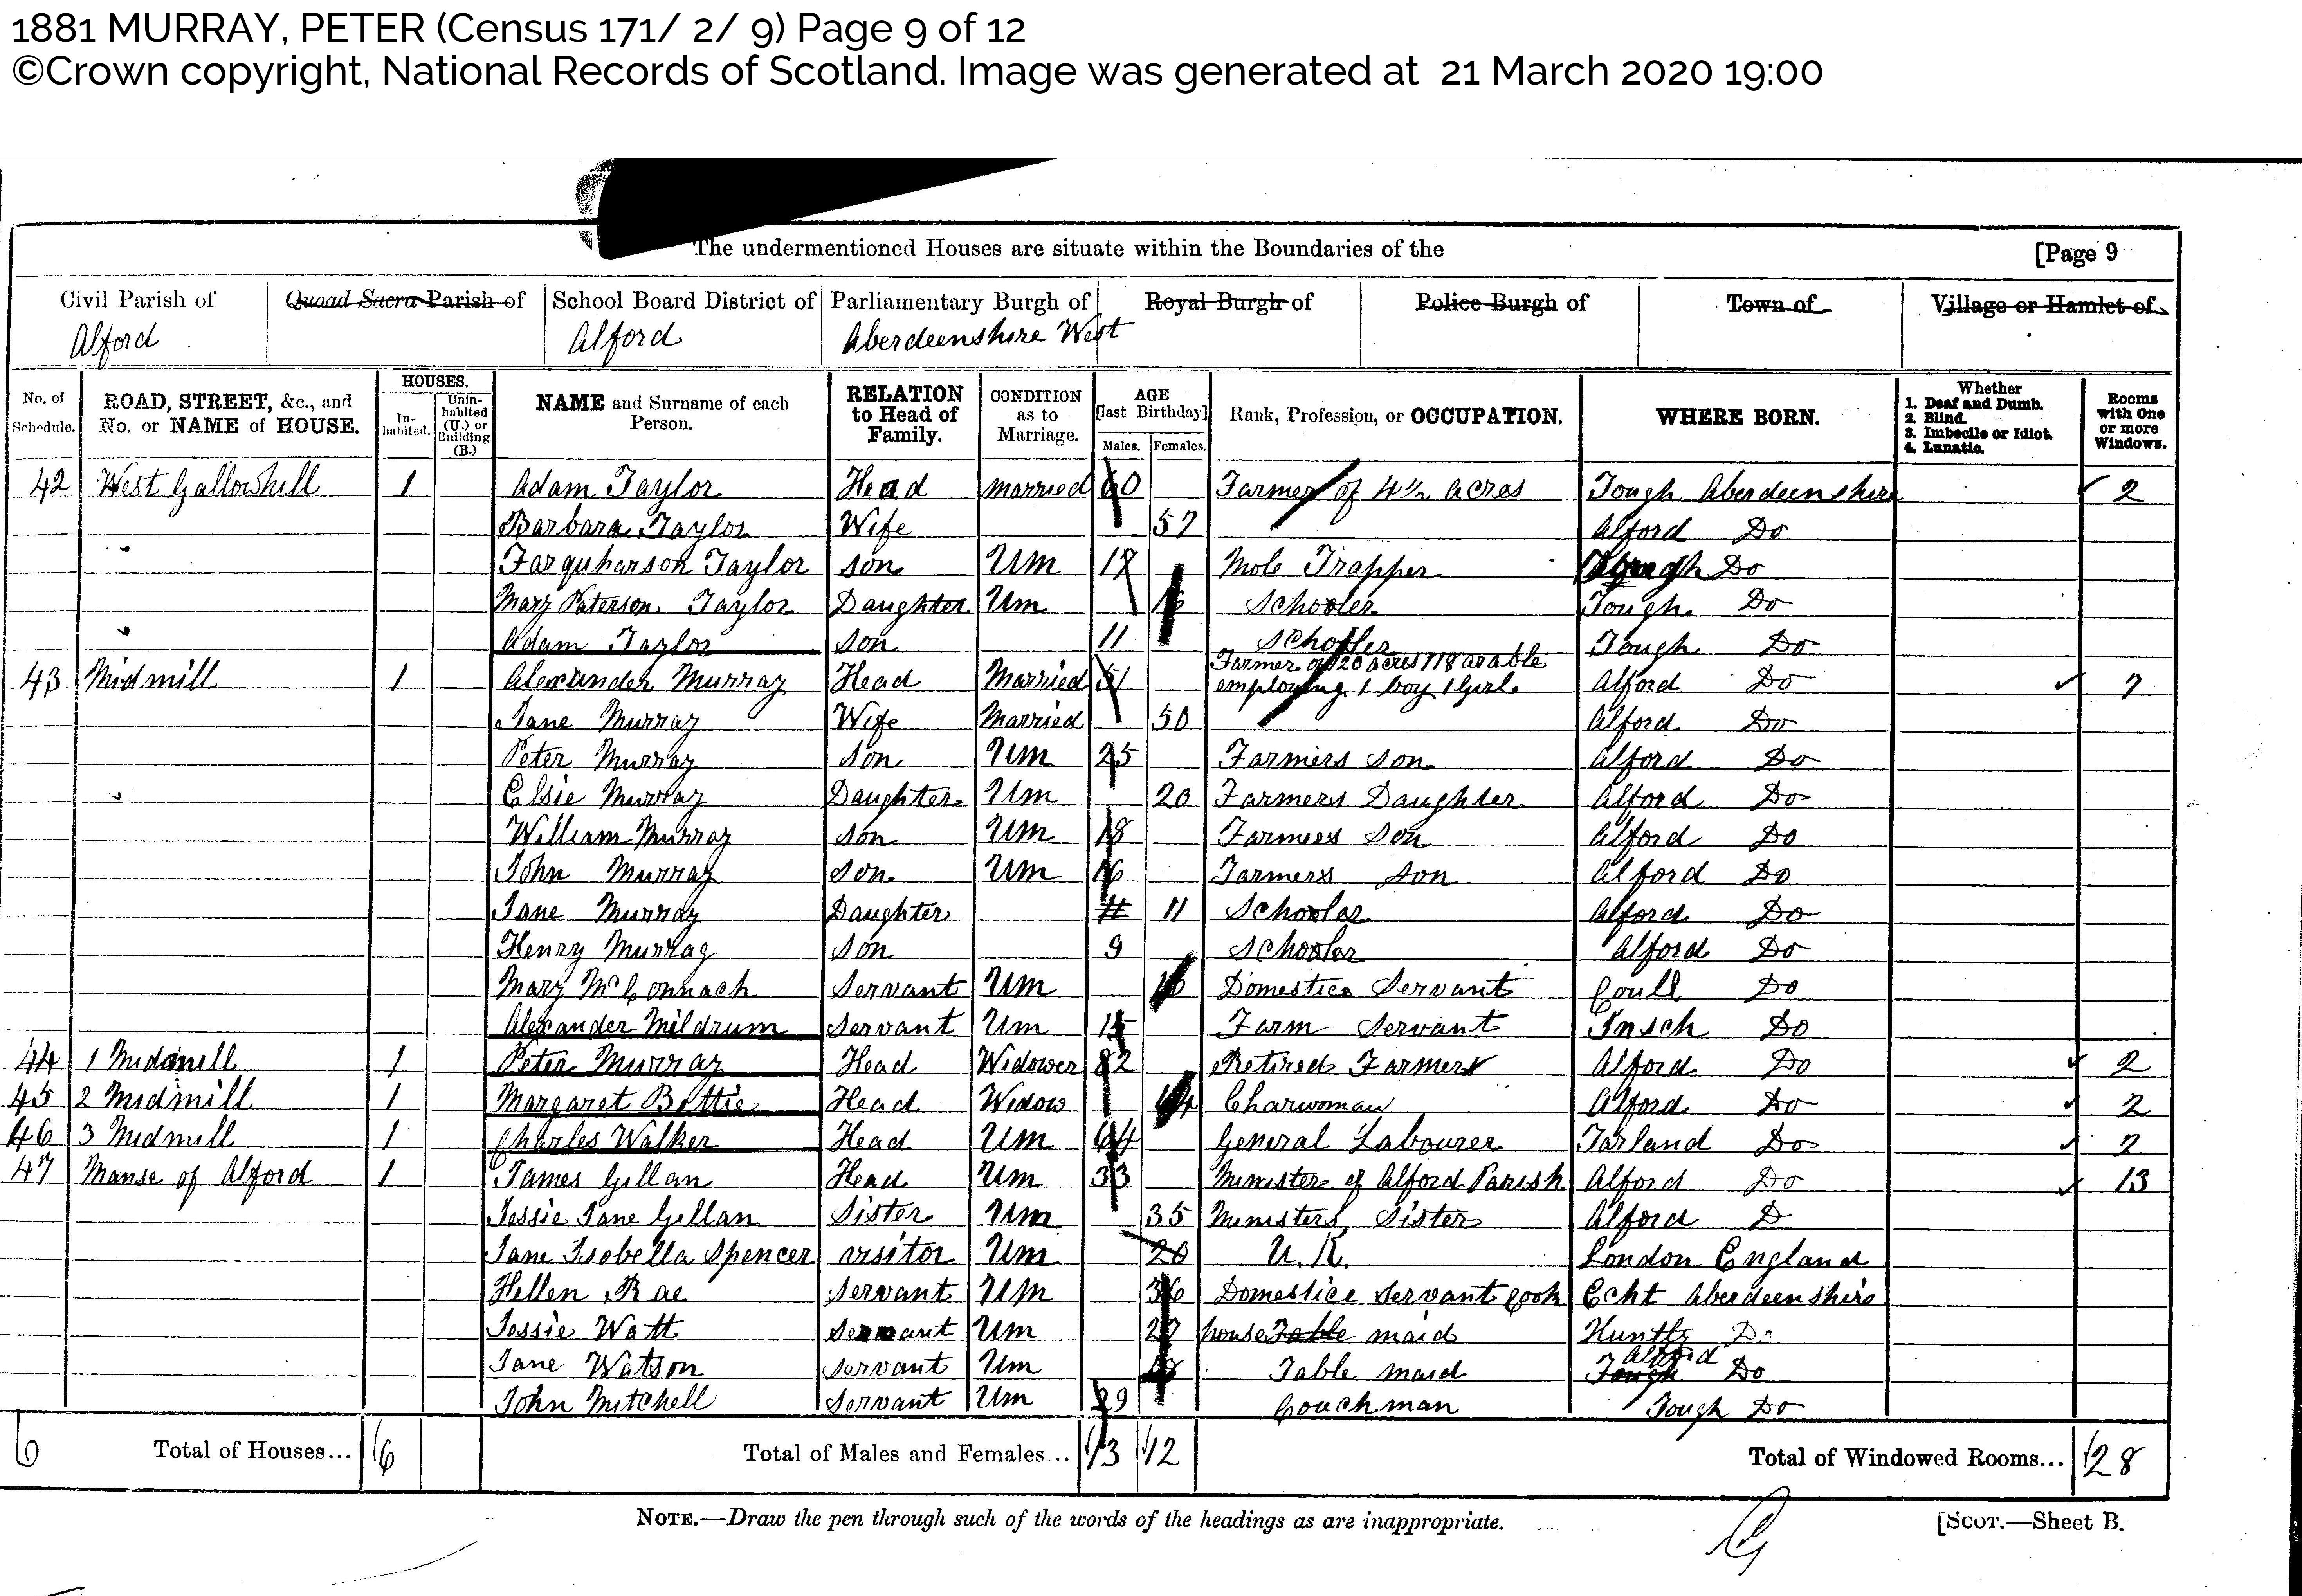 1881 MURRAY, PETER (Census 171/ 2/ 9) Page 9 of 12
©Crown copyright, National Records of Scotland. Image was generated at 21 March 2020 19:00
The undermentioned Houses are situate within the Boundaries of the [Page 9
Civil Parish of Quoad Sacra Parish of School Board District of Parliamentary Burgh of Royal Burgh of Police Burgh of Town of Village or Hamlet of
Alford Alford Aberdeenshire West
No. of Schedule. ROAD, STREET, &c., and No. or NAME of HOUSE. HOUSES. Inhabited. Uninhabited (U.) or Building (B.) NAME and Surname of each Person. RELATION to Head of Family. CONDITION as to Marriage. AGE [last Birthday] Males. Females. Rank, Profession, or OCCUPATION. WHERE BORN. Whether 1. Deaf and Dumb. 2. Blind. 3. Imbecile or Idiot. 4. Lunatic. Rooms with One or more Windows.
42 West Gallowhill 1 Adam Taylor Head Married 60 Farmer of 4½ acres Tough Aberdeenshire 2
Barbara Taylor Wife 57 Alford Do
Farquharson Taylor Son Um 17 Mole Trapper Do
Mary Paterson Taylor Daughter Um Schooler Tough Do
Adam Taylor Son 11 Schooler Tough Do
43 Midmill 1 Alexander Murray Head Married 51 Farmer of 120 acres 118 arable employing 1 boy 1 Girl. Alford Do 7
Jane Murray Wife Married 50 Alford Do
Peter Murray Son Um 25 Farmers Son Alford Do
Elsie Murray Daughter Um 20 Farmers Daughter Alford Do
William Murray Son Um 18 Farmers Son Alford Do
John Murray Son Um 16 Farmers Son Alford Do
Jane Murray Daughter 11 11 Schooler Alford Do
Henry Murray Son 9 Schooler Alford Do
Mary McConnach Servant Um 16 Domestice Servant Coull Do
Alexander Mildrum Servant Um 15 Farm Servant Insch Do
44 1 Midmill 1 Peter Murray Head Widower 82 Retired Farmer Alford Do 2
45 2 Midmill 1 Margaret Bettie Head Widow Charwoman Alford Do 2
46 3 Midmill 1 Charles Walker Head Um 64 General Labourer Tarland Do 2
47 Manse of Alford 1 James Gillan Head Um 33 Minister of Alford Parish Alford Do 13
Jessie Jane Gillan Sister Um 35 Ministers Sister Alford D
Jane Isobella Spencer visitor Um 20 U. K. London England
Hellen Rae Servant Um 36 Domestice Servant Cook Echt Aberdeenshire
Jessie Watt Servant Um 27 house Table maid Huntly Do
Jane Watson Servant Um Table maid Tough Alford Do
John Mitchell Servant Um 29 Coachman Tough Do
6 Total of Houses... 6 Total of Males and Females... 13 12 Total of Windowed Rooms... 28
NOTE.—Draw the pen through such of the words of the headings as are inappropriate. [SCOT.—Sheet B.